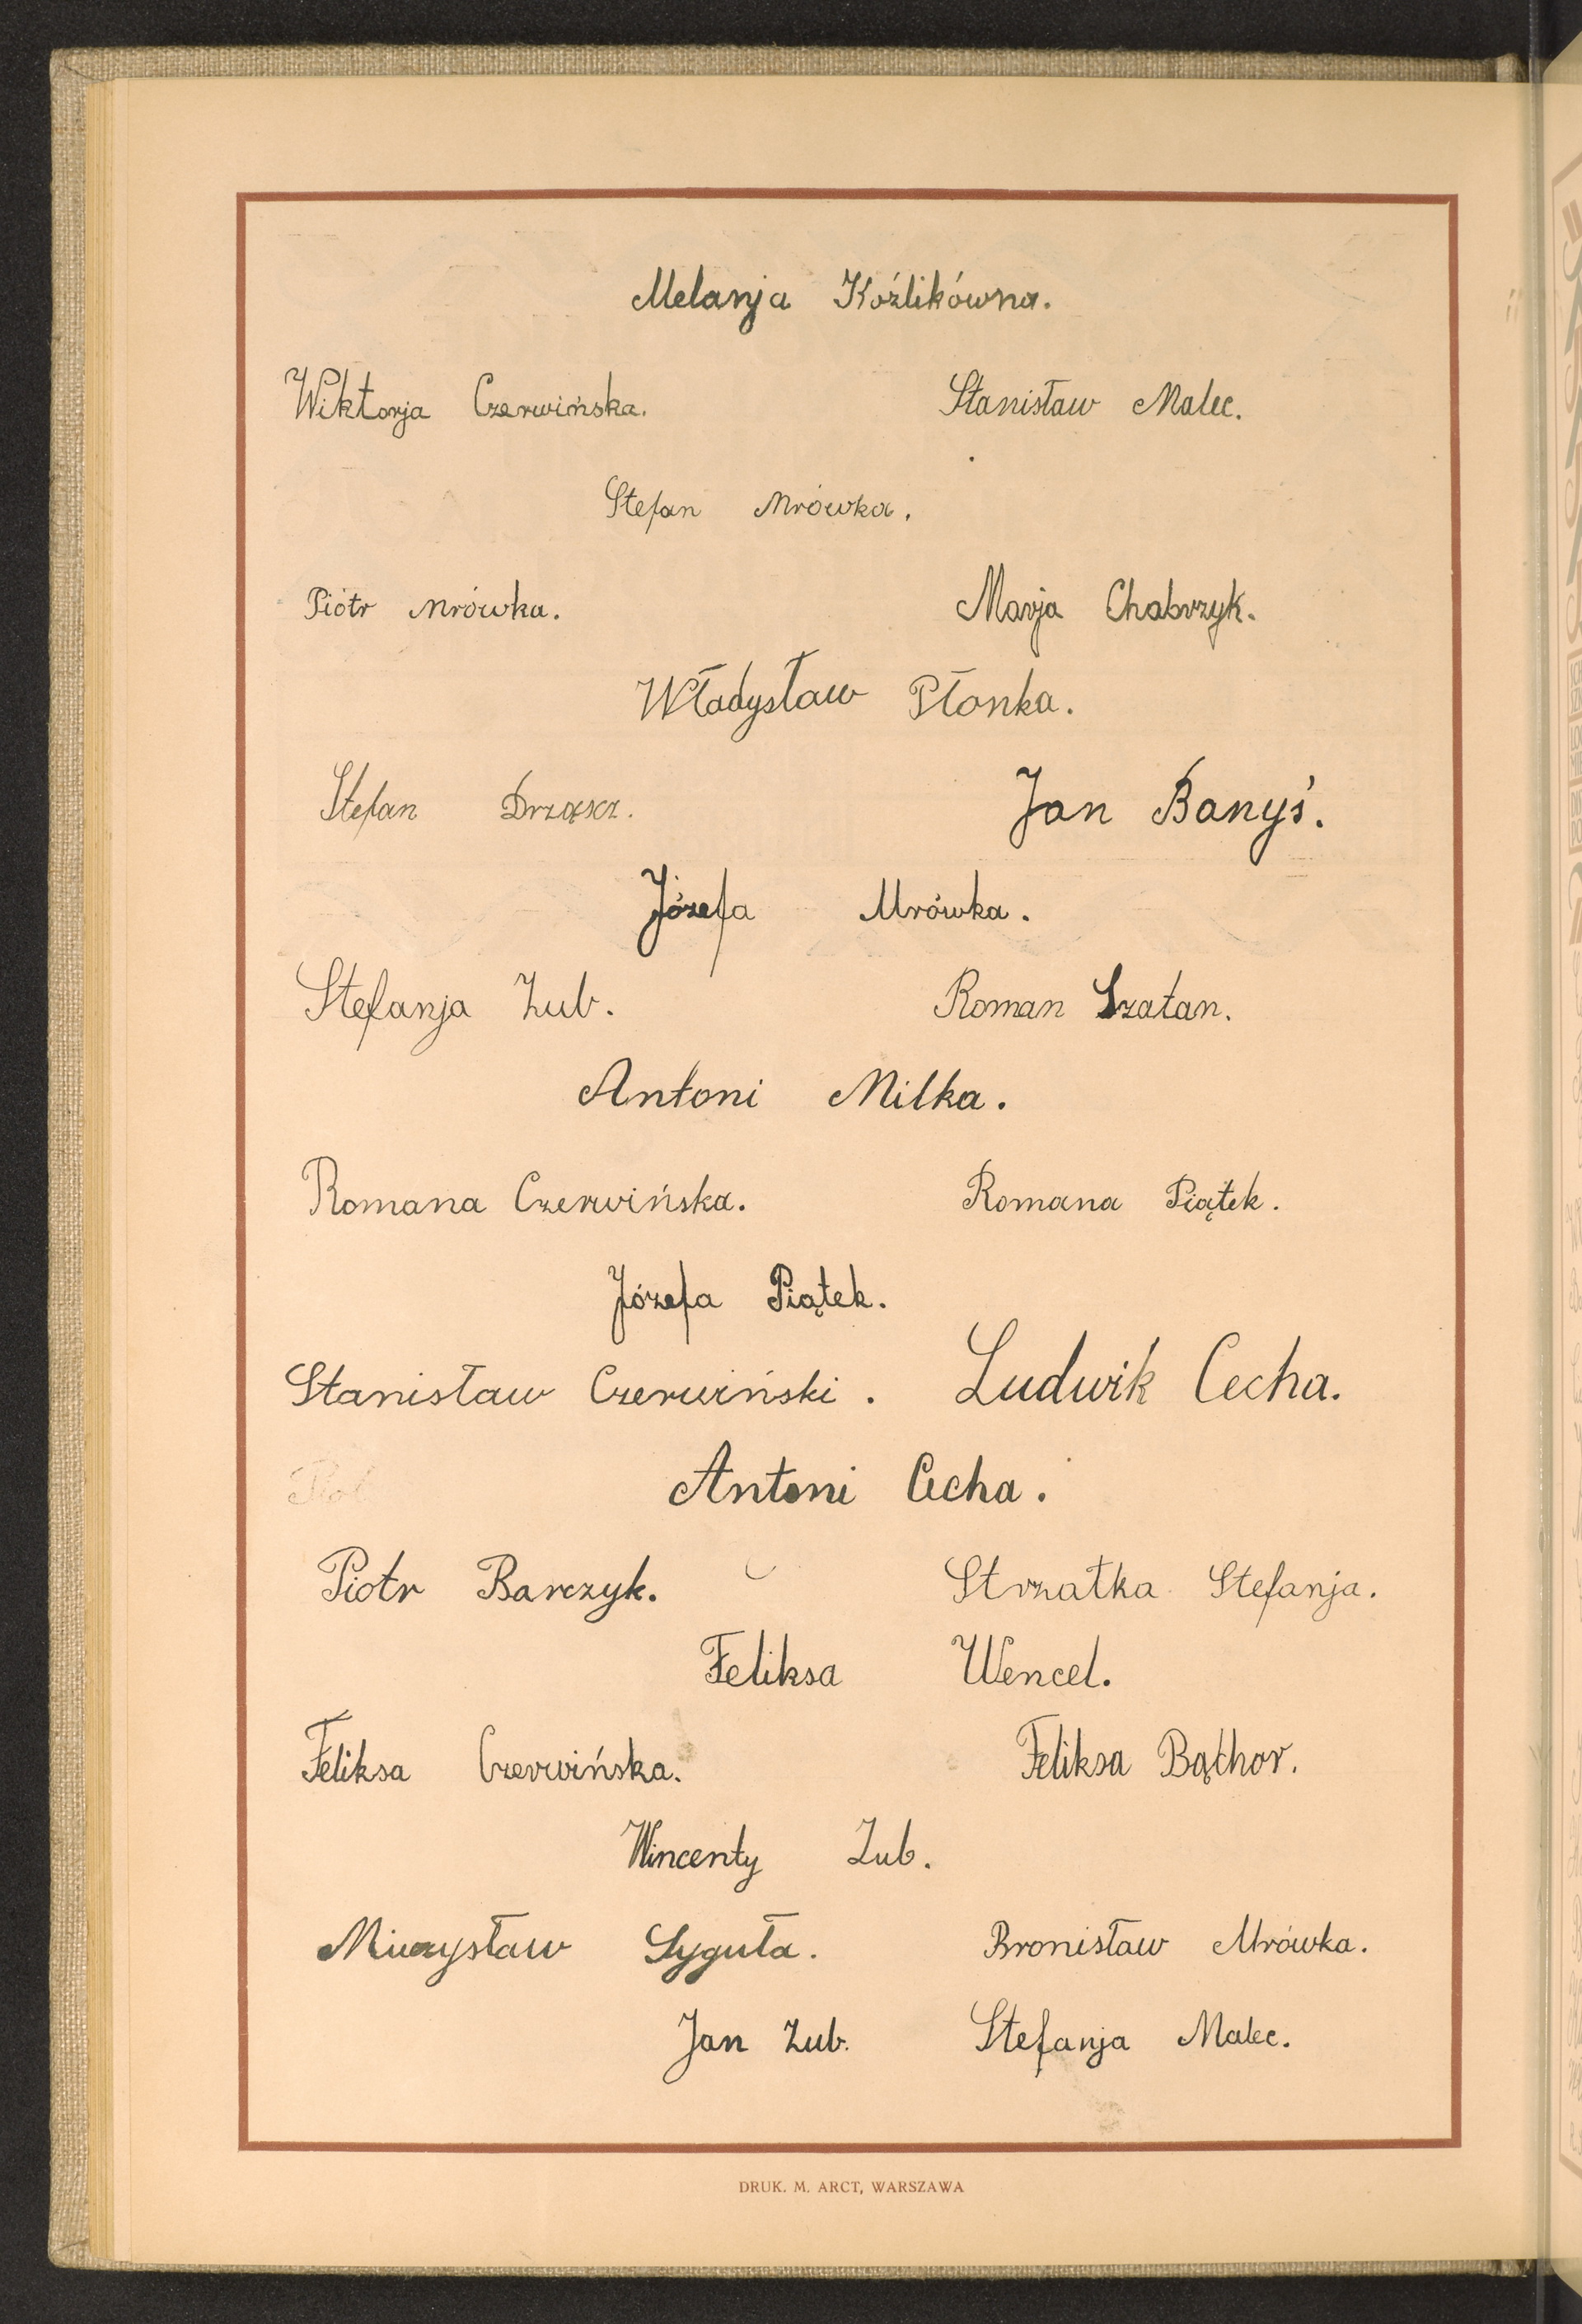 Melanja Koźlikówna.
Wiktorja Czerwińska. Stanisław Malec.
Stefan Mrówka.
Piótr Mrówka. Marja Chabrzyk.
Władysław Płonka.
Stefan Drząscz. Jan Banyś.
Józefa Mrówka.
Stefanja Zub. Roman Szatan.
Antoni Milka.
Romana Czerwińska. Romana Piątek.
Józefa Piątek.
Stanisław Czerwiński. Ludwik Cecha.
Antoni Cecha.
Piotr Barczyk. Strzałka Stefanja.
Feliksa Wencel.
Feliksa Czerwińska. Feliksa Bąchor.
Wincenty Zub.
Mieczysław Syguła. Bronisław Mrówka.
Jan Zub. Stefanja Malec.
DRUK. M. ARCT, WARSZAWA